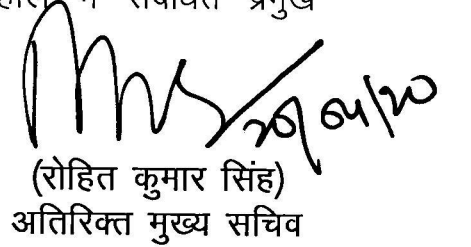 में संबंधित प्रमुख
20/04/20
(रोहित कुमार सिंह)
अतिरिक्त मुख्य सचिव